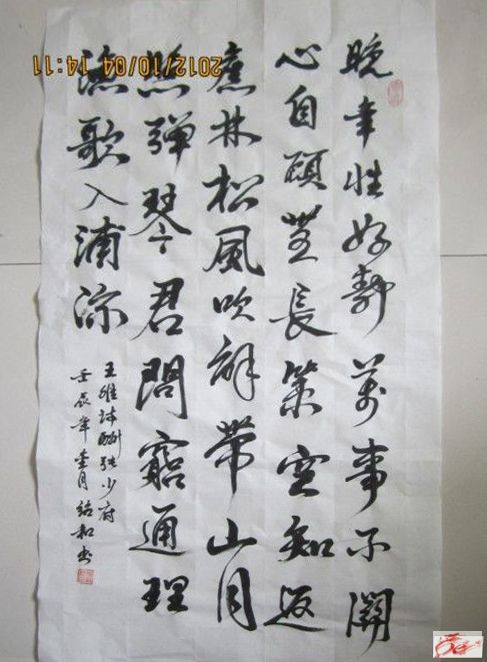 晚年性好靜萬事不關
心自顧無長策空知返
舊林松風吹解帶山月
照彈琴君問窮通理
漁歌入浦深
王維詩酬張少府
壬辰年月紹和書
2012/10/04 14:11